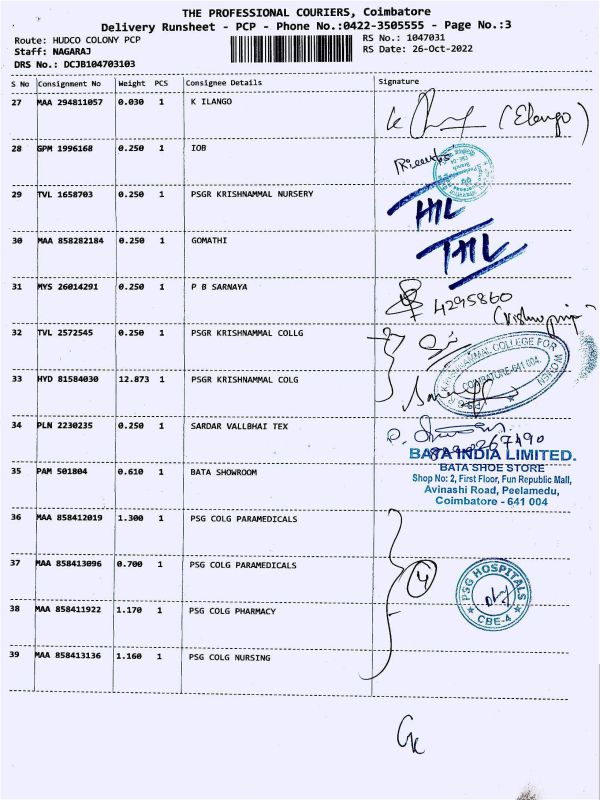 THE PROFESSIONAL COURIERS, Coimbatore
Delivery Runsheet - PCP - Phone No.:0422-3505555 - Page No.:3
Route: HUDCO COLONY PCP
RS No.: 1047031
Staff: NAGARAJ
RS Date: 26-Oct-2022
DRS No.: DCJB104703103
S No Consignment No Weight PCS Consignee Details Signature
27 MAA 294811057 0.030 1 K ILANGO
(Elango)
28 GPM 1996168 0.250 1 IOB
29 TVL 1658703 0.250 1 PSGR KRISHNAMMAL NURSERY
30 MAA 858282184 0.250 1 GOMATHI
31 MYS 26014291 0.250 1 P B SARNAYA
4295860
32 TVL 2572545 0.250 1 PSGR KRISHNAMMAL COLLG
KRISHNAMMAL COLLEGE FOR WOMEN
COIMBATORE-641 004.
33 HYD 81584030 12.873 1 PSGR KRISHNAMMAL COLG
34 PLN 2230235 0.250 1 SARDAR VALLBHAI TEX
BATA INDIA LIMITED.
BATA SHOE STORE
Shop No: 2, First Floor, Fun Republic Mall,
Avinashi Road, Peelamedu,
Coimbatore - 641 004
35 PAM 501804 0.610 1 BATA SHOWROOM
36 MAA 858412019 1.300 1 PSG COLG PARAMEDICALS
37 MAA 858413096 0.700 1 PSG COLG PARAMEDICALS
4
PSG HOSPITALS
CBE-4
38 MAA 858411922 1.170 1 PSG COLG PHARMACY
39 MAA 858413136 1.160 1 PSG COLG NURSING